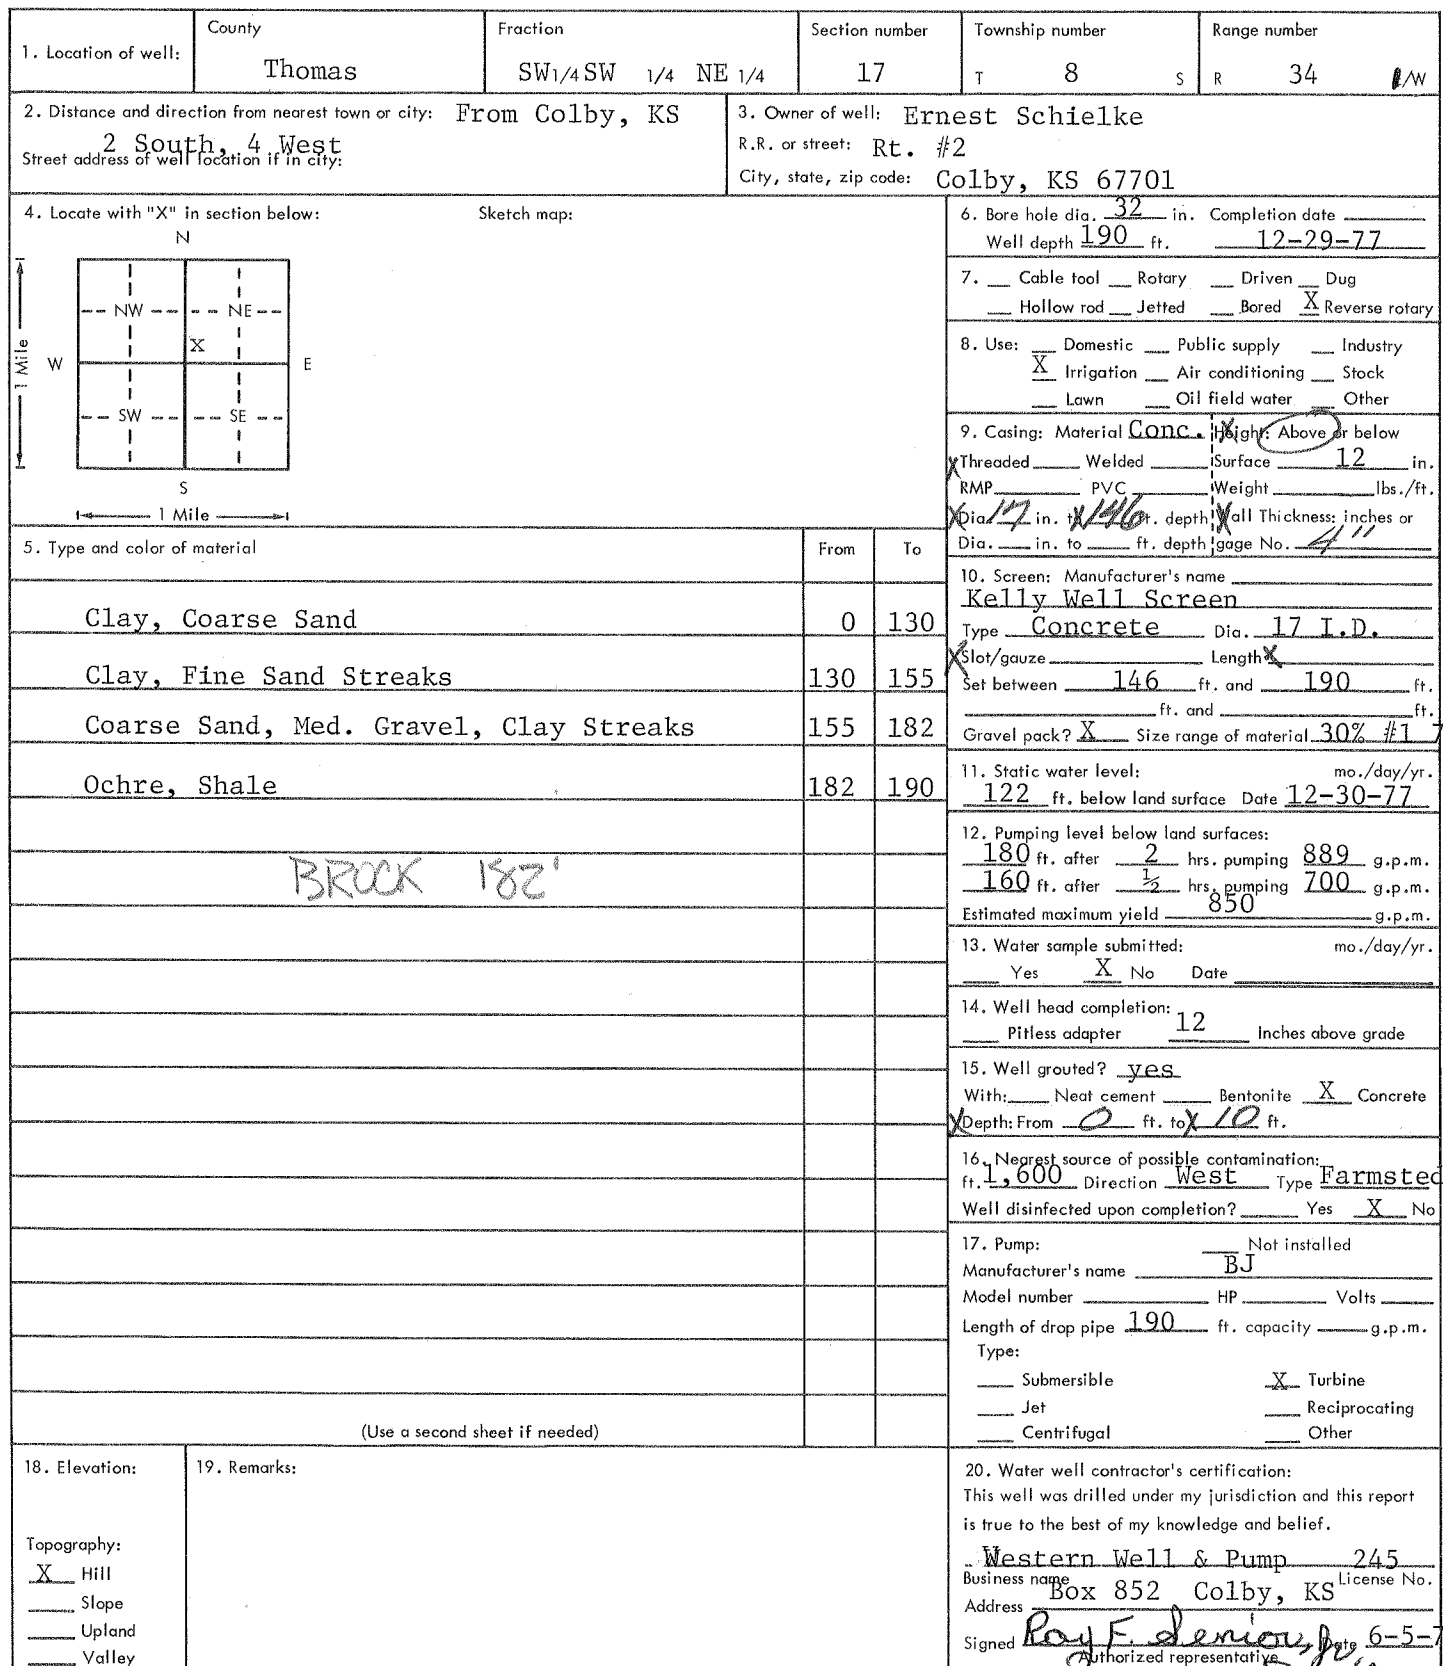 1. Location of well:
County
Thomas
Fraction
SW 1/4 SW 1/4 NE 1/4
Section number
17
Township number
T 8 S
Range number
R 34 /W
2. Distance and direction from nearest town or city: From Colby, KS
2 South, 4 West
Street address of well location if in city:
3. Owner of well: Ernest Schielke
R.R. or street: Rt. #2
City, state, zip code: Colby, KS 67701
4. Locate with "X" in section below:
Sketch map:
N
NW NE
X
W E
SW SE
S
1 Mile
1 Mile
5. Type and color of material From To
Clay, Coarse Sand 0 130
Clay, Fine Sand Streaks 130 155
Coarse Sand, Med. Gravel, Clay Streaks 155 182
Ochre, Shale 182 190
BROCK 182'
(Use a second sheet if needed)
6. Bore hole dia. 32 in. Completion date
Well depth 190 ft. 12-29-77
7. Cable tool Rotary Driven Dug
Hollow rod Jetted Bored X Reverse rotary
8. Use: Domestic Public supply Industry
X Irrigation Air conditioning Stock
Lawn Oil field water Other
9. Casing: Material Conc. Height: Above or below
X Threaded Welded Surface 12 in.
RMP PVC Weight lbs./ft.
X Dia. 17 in. to 146 ft. depth Wall Thickness: inches or
Dia. in. to ft. depth gage No. 4"
10. Screen: Manufacturer's name
Kelly Well Screen
Type Concrete Dia. 17 I.D.
X Slot/gauze Length X
Set between 146 ft. and 190 ft.
ft. and ft.
Gravel pack? X Size range of material 30% #1
11. Static water level: mo./day/yr.
122 ft. below land surface Date 12-30-77
12. Pumping level below land surfaces:
180 ft. after 2 hrs. pumping 889 g.p.m.
160 ft. after ½ hrs. pumping 700 g.p.m.
Estimated maximum yield 850 g.p.m.
13. Water sample submitted: mo./day/yr.
Yes X No Date
14. Well head completion:
Pitless adapter 12 Inches above grade
15. Well grouted? yes
With: Neat cement Bentonite X Concrete
X Depth: From 0 ft. to X 10 ft.
16. Nearest source of possible contamination:
ft. 1,600 Direction West Type Farmsted
Well disinfected upon completion? Yes X No
17. Pump: Not installed
Manufacturer's name BJ
Model number HP Volts
Length of drop pipe 190 ft. capacity g.p.m.
Type:
Submersible X Turbine
Jet Reciprocating
Centrifugal Other
18. Elevation:
Topography:
X Hill
Slope
Upland
Valley
19. Remarks:
20. Water well contractor's certification:
This well was drilled under my jurisdiction and this report
is true to the best of my knowledge and belief.
Western Well & Pump 245
Business name License No.
Address Box 852 Colby, KS
Signed Roy F. Senior, Jr. Date 6-5-7
Authorized representative